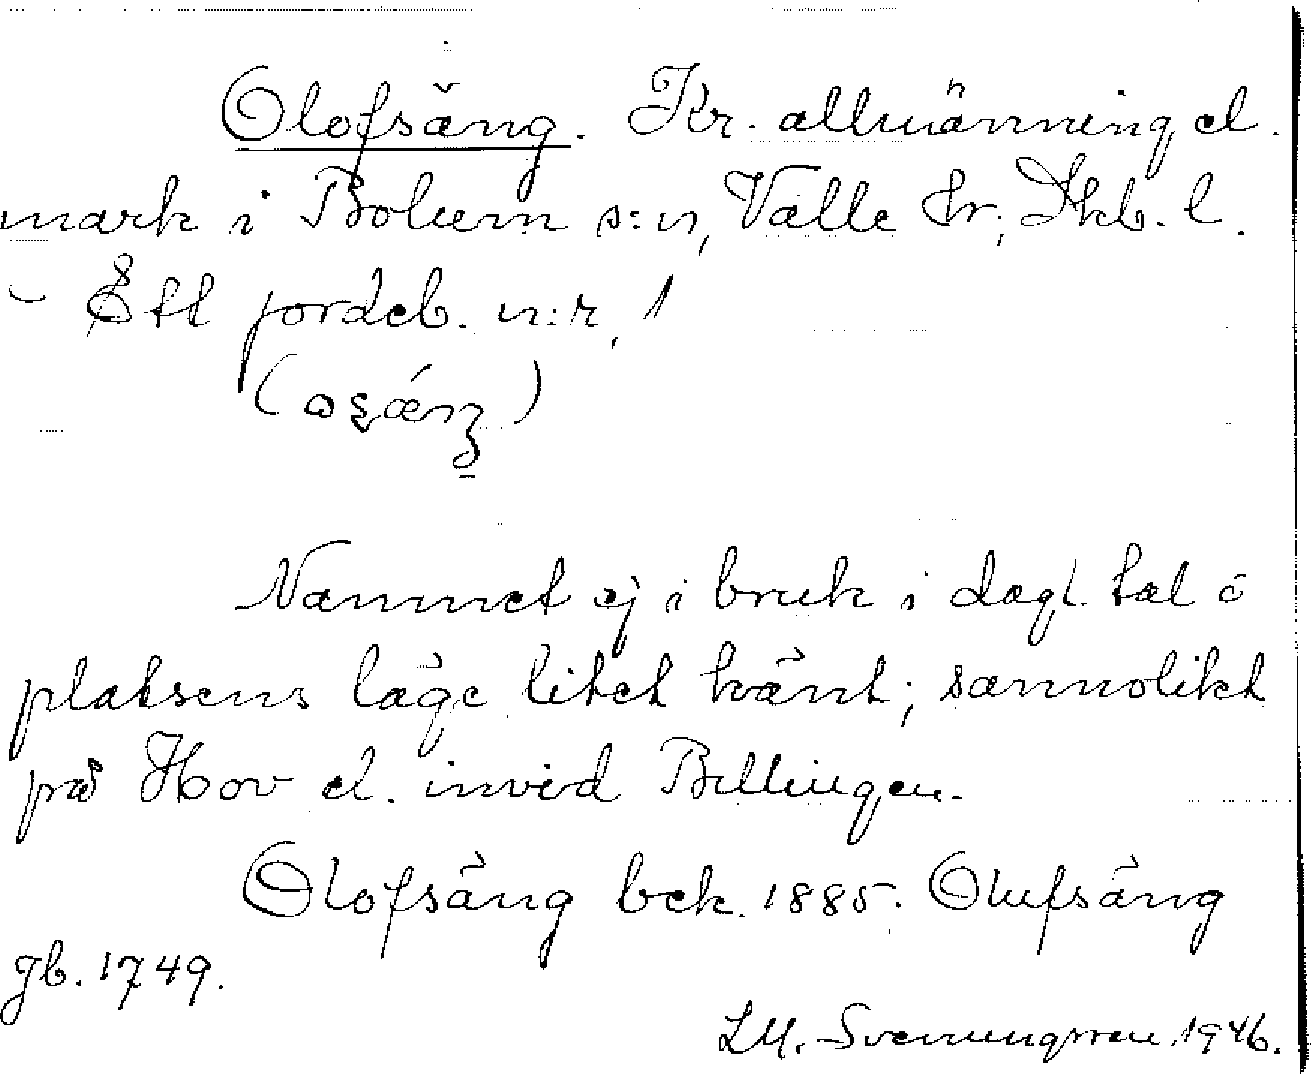 Olofsäng. Kr. allmänning el.
mark i Bolum s:n, Valle hr, Skb. l.
- Ett jordeb. n:r, 1
Namnet ej i bruk i dagl. tal o
platsens läge litet känt; sannolikt
på Hov el. invid Billingen.
Olofsäng bek. 1885. Olufsäng
jb. 1749.
LM. Svenungsson 1946.